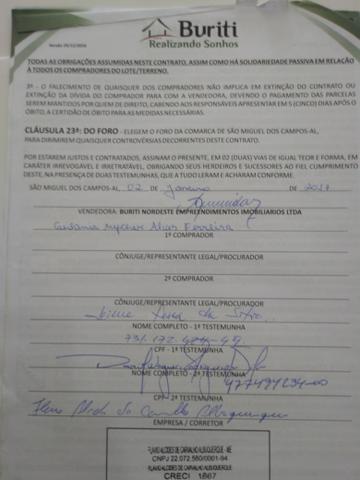 Buriti
Versão 29/12/2016
Realizando Sonhos
TODAS AS OBRIGAÇÕES ASSUMIDAS NESTE CONTRATO, ASSIM COMO HÁ SOLIDARIEDADE PASSIVA EM RELAÇÃO
À TODOS OS COMPRADORES DO LOTE/TERRENO.
3ª - O FALECIMENTO DE QUAISQUER DOS COMPRADORES NÃO IMPLICA EM EXTINÇÃO DO CONTRATO OU
EXTINÇÃO DA DÍVIDA DO COMPRADOR PARA COM A VENDEDORA, DEVENDO O PAGAMENTO DAS PARCELAS
SEREM MANTIDOS POR QUEM DE DIREITO, CABENDO AOS RESPONSÁVEIS APRESENTAR EM 5 (CINCO) DIAS APÓS O
ÓBITO, A CERTIDÃO DE ÓBITO PARA AS MEDIDAS NECESSÁRIAS.
CLÁUSULA 23ª: DO FORO - ELEGEM O FORO DA COMARCA DE SÃO MIGUEL DOS CAMPOS-AL,
PARA DIRIMIREM QUAISQUER CONTROVÉRSIAS DECORRENTES DESTE CONTRATO.
POR ESTAREM JUSTOS E CONTRATADOS, ASSINAM O PRESENTE, EM 02 (DUAS) VIAS DE IGUAL TEOR E FORMA, EM
CARÁTER IRREVOGÁVEL E IRRETRATÁVEL, OBRIGANDO SEUS HERDEIROS E SUCESSORES AO FIEL CUMPRIMENTO
DESTE, NA PRESENÇA DE DUAS TESTEMUNHAS, QUE A TUDO LERAM E ACHARAM CONFORME.
SÃO MIGUEL DOS CAMPOS-AL, 02 DE Janeiro DE 2017
VENDEDORA: BURITI NORDESTE EMPREENDIMENTOS IMOBILIARIOS LTDA
Alves Ferreira
1º COMPRADOR
CÔNJUGE/REPRESENTANTE LEGAL/PROCURADOR
2º COMPRADOR
CÔNJUGE/REPRESENTANTE LEGAL/PROCURADOR
da Silva
NOME COMPLETO - 1ª TESTEMUNHA
CPF - 1ª TESTEMUNHA
NOME COMPLETO - 2ª TESTEMUNHA
CPF - 2ª TESTEMUNHA
de Carvalho Albuquerque
EMPRESA / CORRETOR
FLAVIO ALCIDES DE CARVALHO ALBUQUERQUE - ME
CNPJ 22.072.560/0001-94
FLAVIO ALCIDES DE CARVALHO ALBUQUERQUE
CRECI 1667